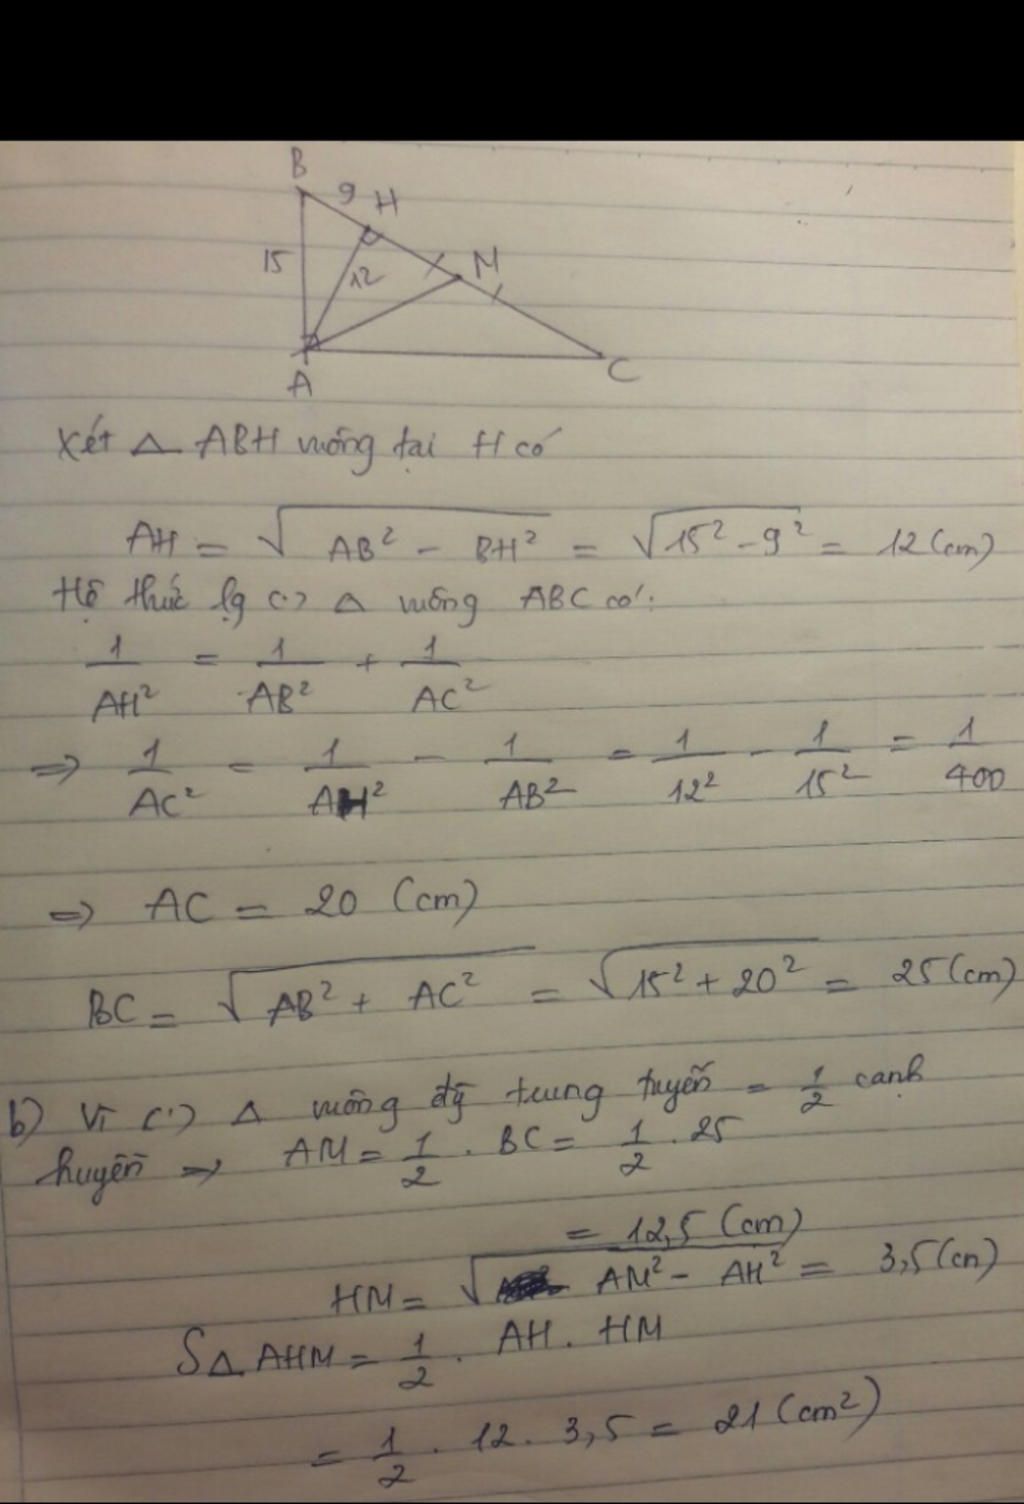 B
9
H
15
12
M
A
C
Xét △ ABH vuông tại H có
AH = √(AB² - BH²) = √(15² - 9²) = 12 (cm)
Hệ thức lg (.) △ vuông ABC có:
1/AH² = 1/AB² + 1/AC²
=> 1/AC² = 1/AH² - 1/AB² = 1/12² - 1/15² = 1/400
=> AC = 20 (cm)
BC = √(AB² + AC²) = √(15² + 20²) = 25 (cm)
b) Vì (.) △ vuông đg trung tuyến = 1/2 cạnh
huyền => AM = 1/2 . BC = 1/2 . 25
= 12,5 (cm)
HM = √(AM² - AH²) = 3,5 (cm)
S△AHM = 1/2 . AH . HM
= 1/2 . 12 . 3,5 = 21 (cm²)